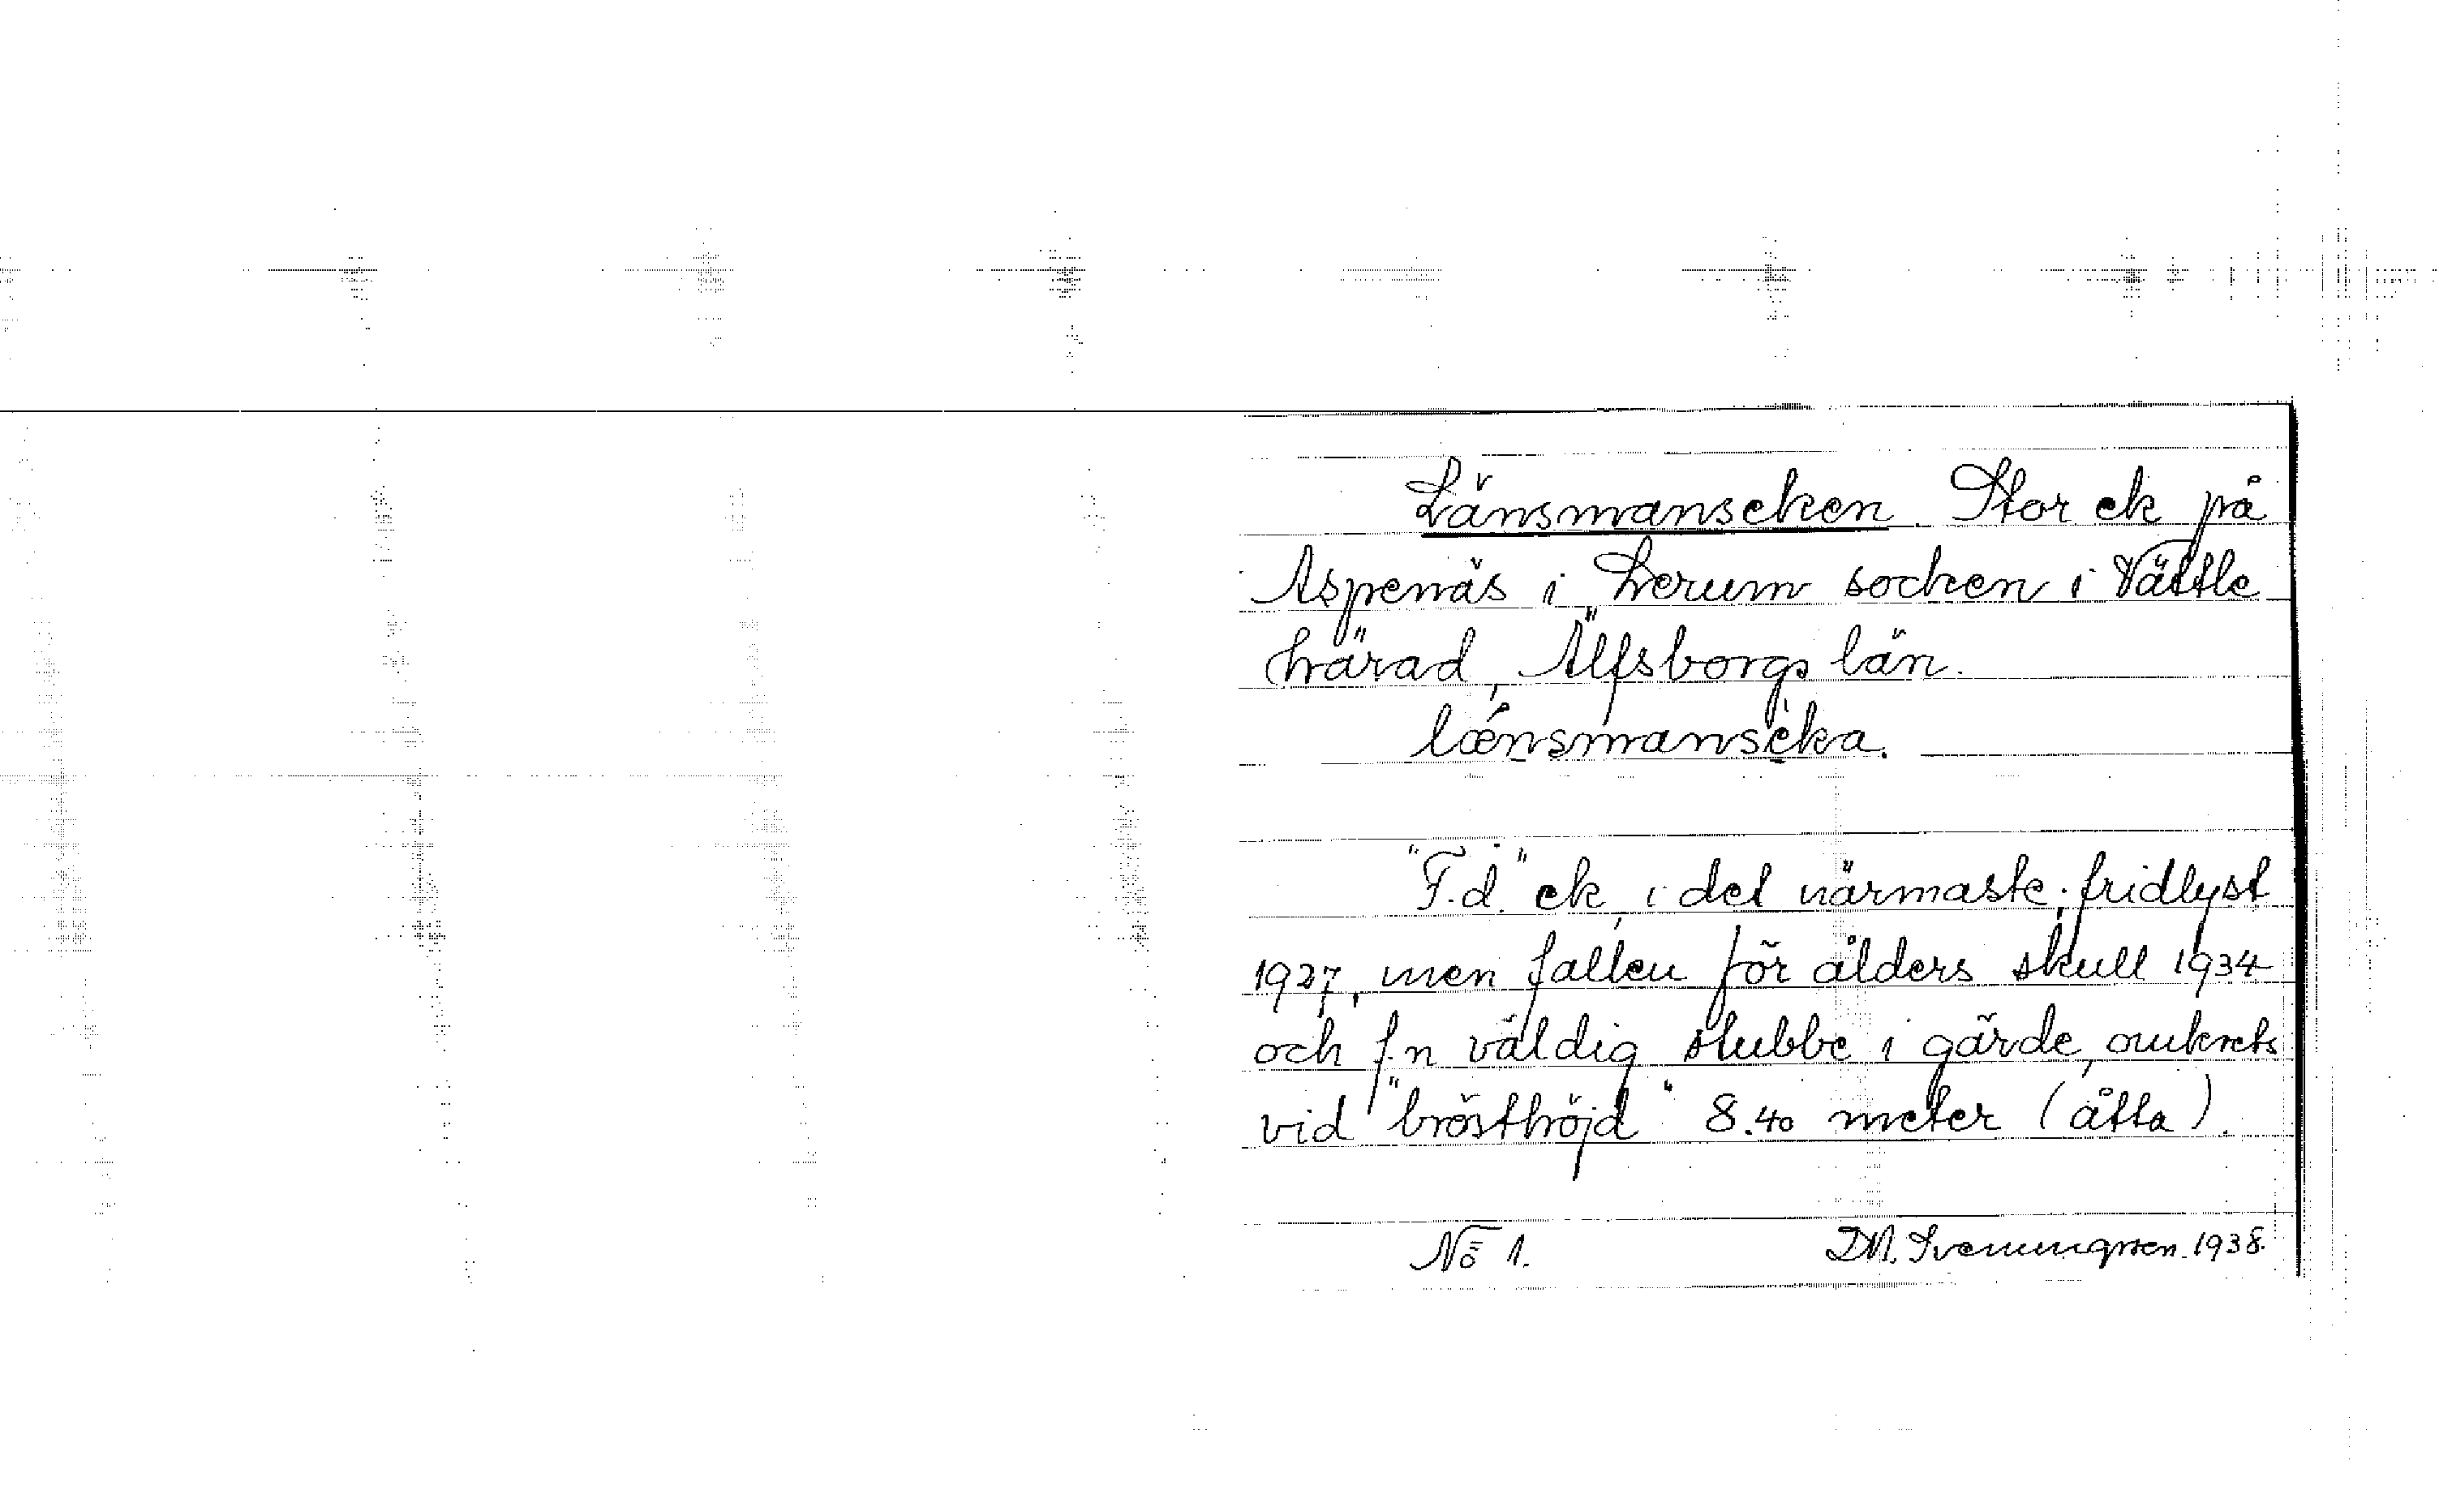 Länsmanseken. Stor ek på
Aspenäs i Lerum socken i Vättle
härad, Älfsborgs län.
lǽnsmansèka.
"F.d." ek, i det närmaste; fridlyst
1927, men fallen för ålders skull 1934
och f.n väldig stubbe i gärde, omkrets
vid "brösthöjd" 8.40 meter (åtta).
No 1.
D.M. Svenungsson. 1938.